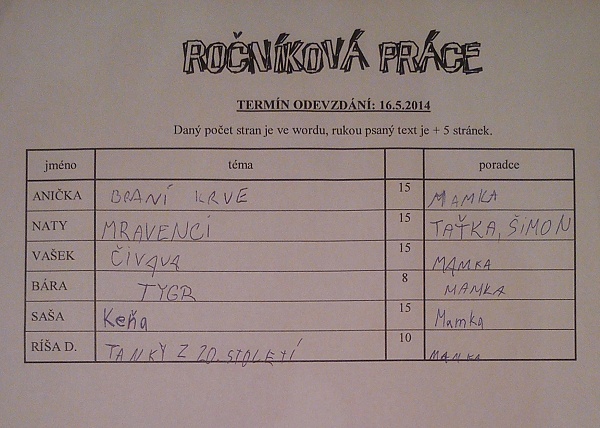 ROČNÍKOVÁ PRÁCE
TERMÍN ODEVZDÁNÍ: 16.5.2014
Daný počet stran je ve wordu, rukou psaný text je + 5 stránek.
jméno téma poradce
ANIČKA BRANÍ KRVE 15 MAMKA
NATY MRAVENCI 15 TAŤKA, ŠIMON
VAŠEK ČIVAVA 15 MAMKA
BÁRA TYGR 8 MAMKA
SAŠA Keňa 15 Mamka
RÍŠA D. TANKY Z 20. STOLETÍ 10 MAMKA